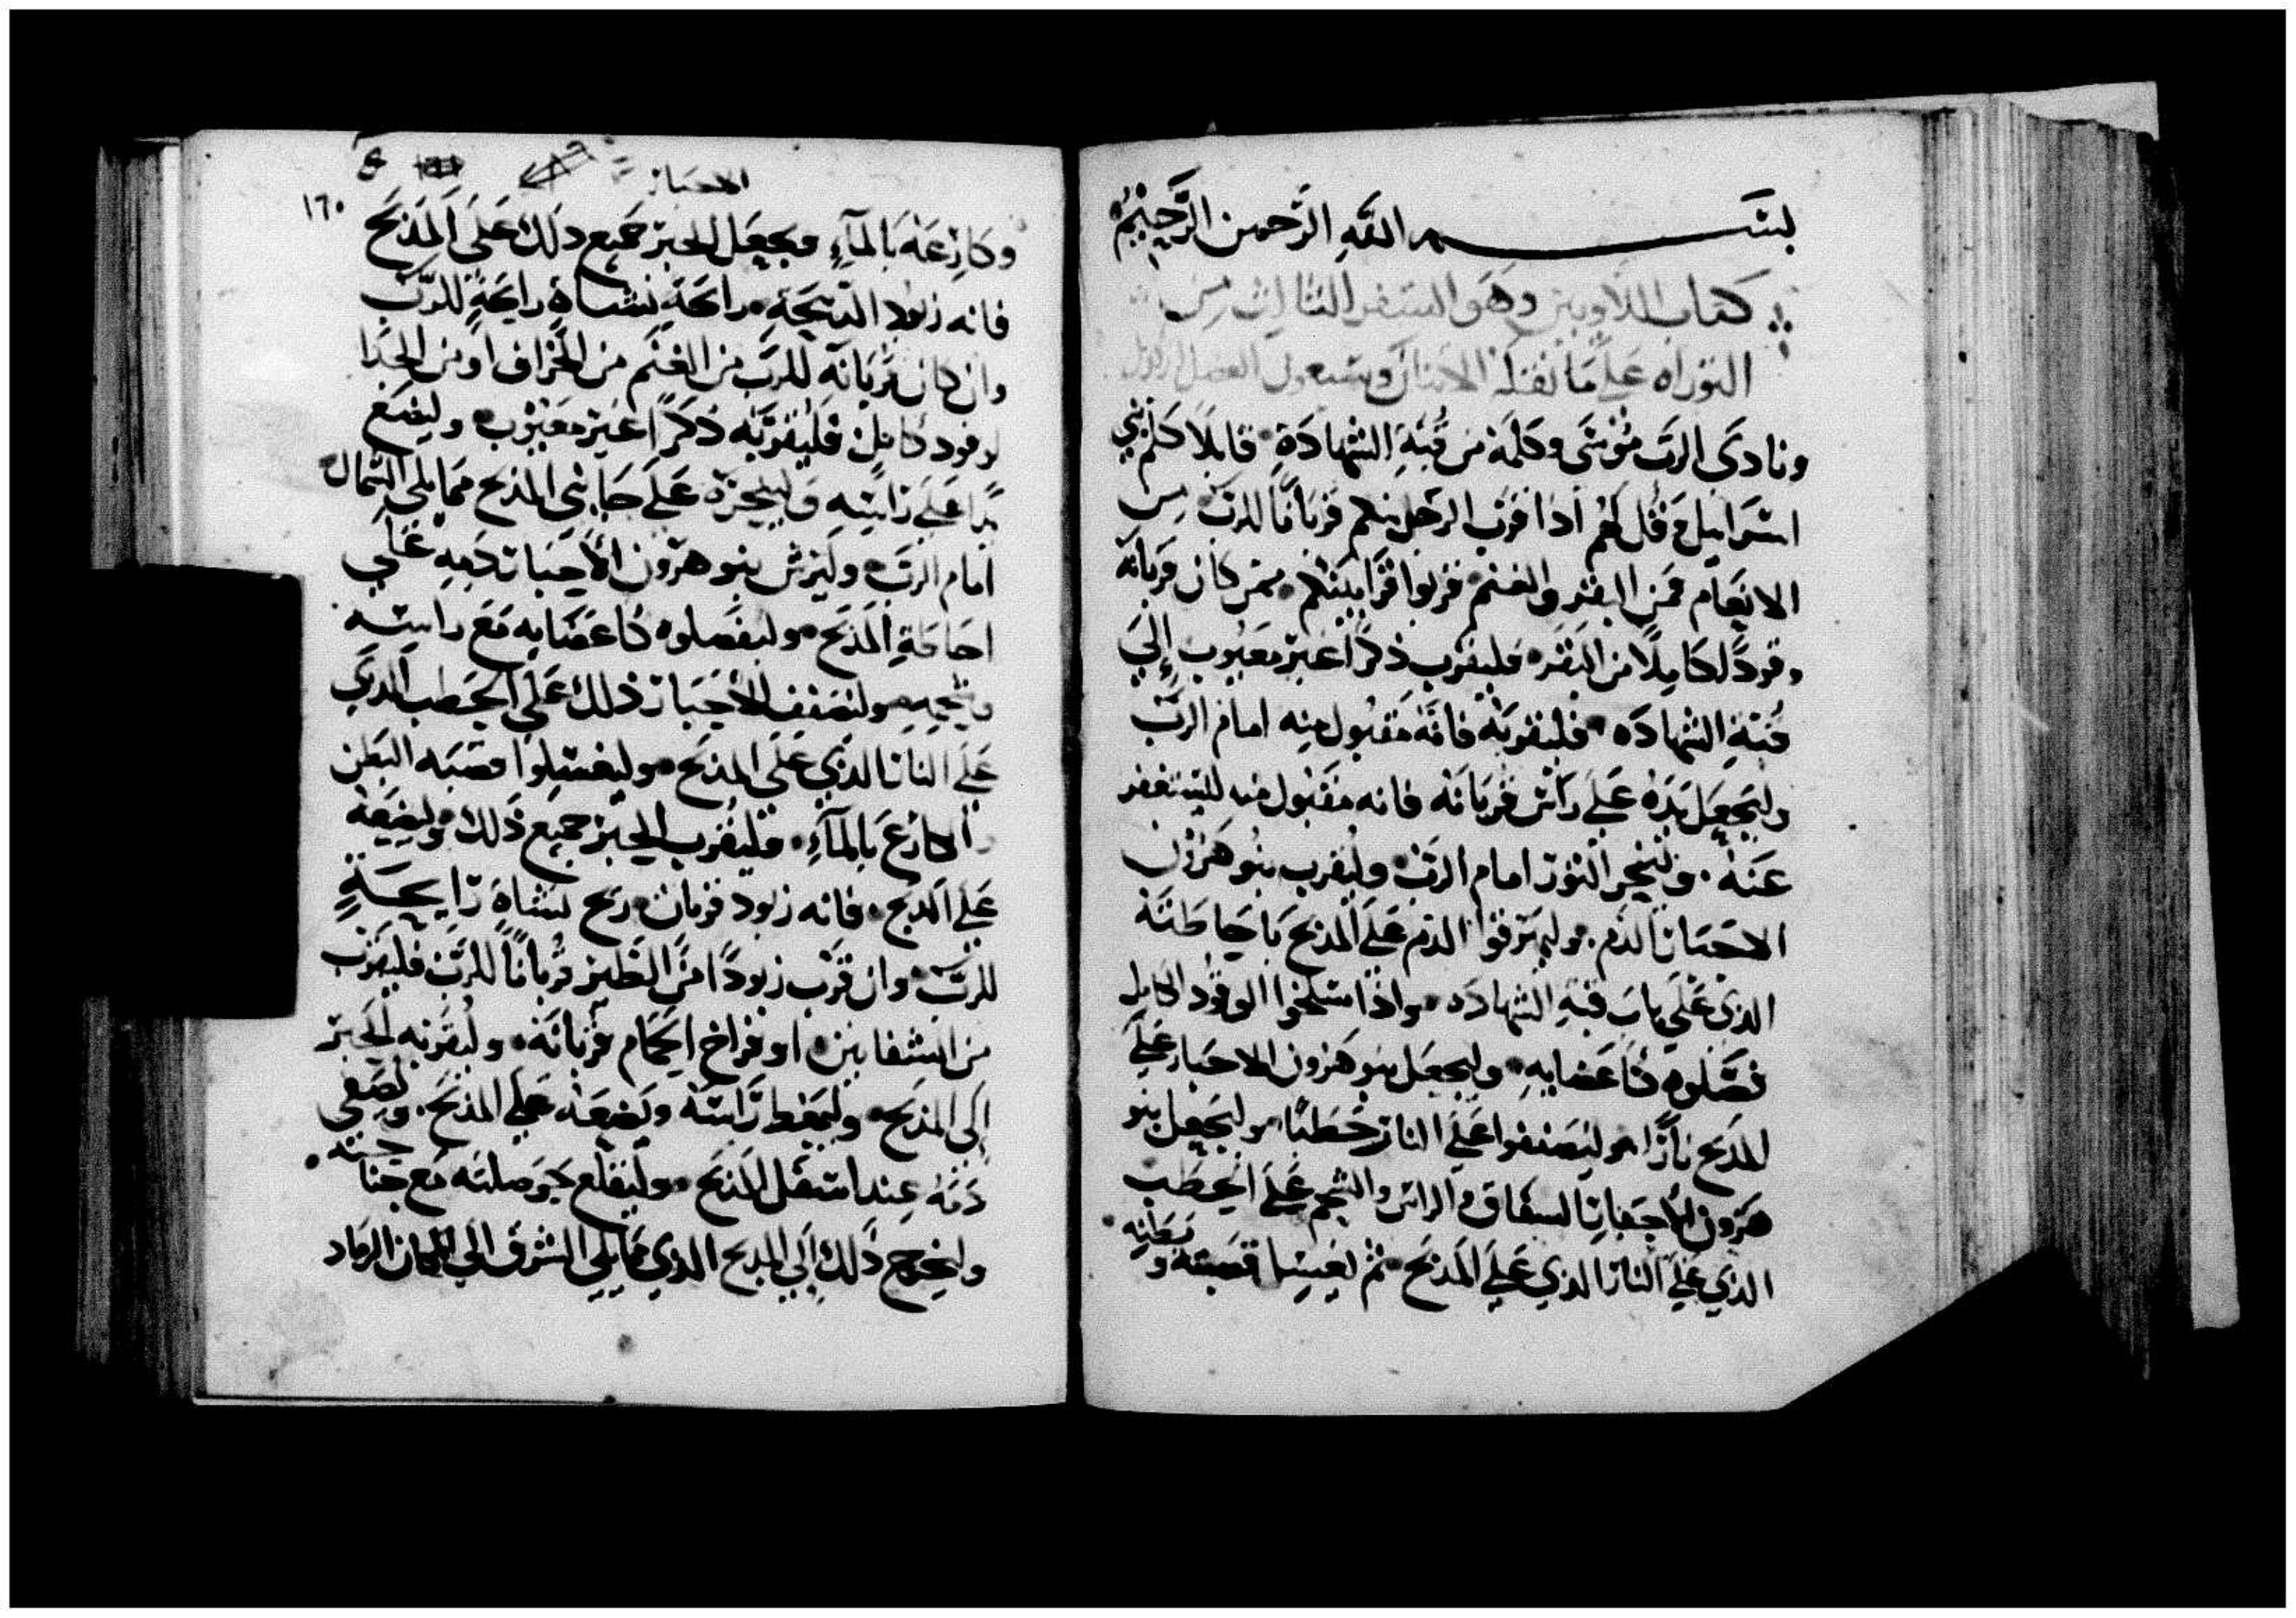 بسم الله الرحمن الرحيم
كتاب اللاويين وهو السفر الثالث من
التوراه على ما نقله الاثنان وسبعون
ونادى الرب موسى وكلمه من قبة الشهادة قايلا كلم بني
اسراييل وقل لهم اذا قرب الرجل منكم قربانا للرب من
الانعام فمن البقر والغنم قربوا قرابينكم فمن كان قربانه
وقودا كاملا من البقر فليقرب ذكرا غير معيوب إلى
قبة الشهاده فليقربه فانه مقبول منه امام الرب
وليجعل يده على راس قربانه فانه مقبول منه ليستغفر
عنه ولينحر الثور امام الرب وليقرب بنو هرون
الاحبار الدم وليهرقوا الدم على المذبح باحاطته
الذي على باب قبة الشهاده واذا سلخوا الوقود الكامل
فصلوه باعضايه وليجعل بنو هرون الاحبار على
المذبح نارا وليصففوا على النار حطبا وليجعل بنو
هرون الاحبار الشقاق والراس والشحم على الحطب
الذي على النار الذي على المذبح ثم ليغسل قصبته وبطنه
الاحبار
١٦٠
وكارعه بالمآء ويجعل الحبر جميع ذلك على المذبح
فانه زبود الذبيحة رايحة نشاة رايحة للرب
وان كان قربانه للرب من الغنم من الخراف او من الجدا
لوقود كامل فليقربه ذكرا غير معيوب وليضع
يدا على راسه ولينحره على جانبي المذبح مما يلي الشمال
امام الرب وليرش بنو هرون الاحبار دمه على
احاطة المذبح وليفصلوه باعضايه مع راسه
وشحمه وليصفف الاحبار ذلك على الحطب الذي
على النار الذي على المذبح وليغسلوا قصبه البطن
والاكارع بالمآء فليقرب الحبر جميع ذلك وليضعه
على المذبح فانه زبود قربان ريح نشاة رايحة
للرب وان قرب زبودا من الطير قربانا للرب فليقرب
من الشفانين او فراخ الحمام قربانه وليقربه الحبر
الى المذبح وليمغط راسه ويضعه على المذبح وليصفي
دمه عند اسفل المذبح وليقلع حوصلته مع جناحته
وليخرج ذلك الى المذبح الذي مما يلي الشرق الى مكان الرماد